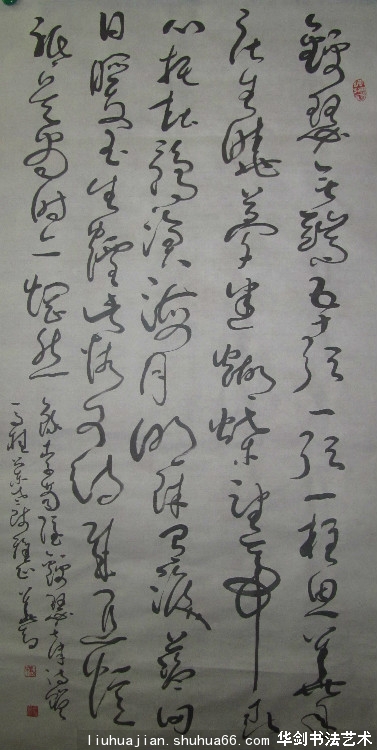 錦瑟無端五十弦一弦一柱思華年
莊生曉夢迷蝴蝶望帝春
心托杜鵑滄海月明珠有淚藍田
日暖玉生煙此情可待成追憶
祇是當時已惘然
錄李商隱錦瑟
liuhuajian.shuhua66.com
华剑书法艺术